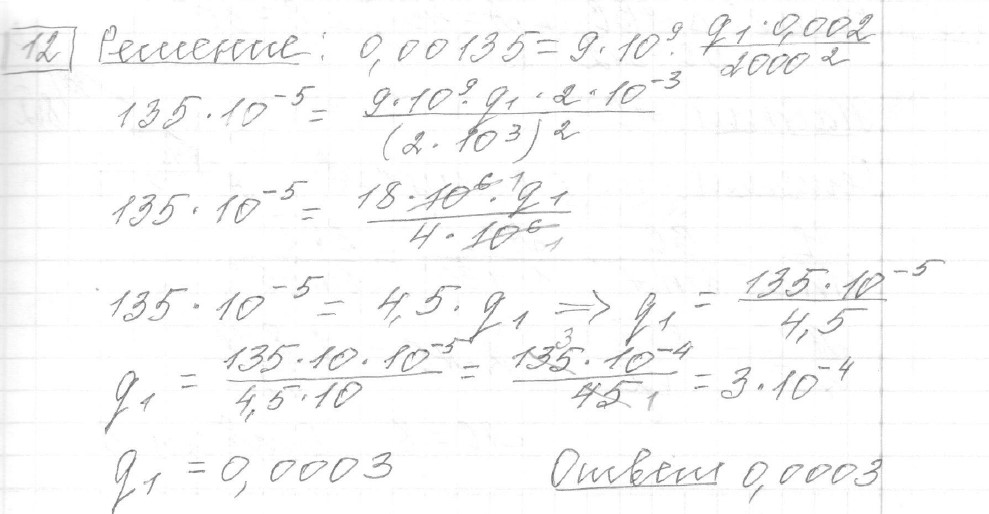 12 Решение: 0,00135 = 9·10⁹· q₁·0,002/2000²
135·10⁻⁵ = 9·10⁹·q₁·2·10⁻³/(2·10³)²
135·10⁻⁵ = 18·10⁶·¹q₁/4·10⁶ ₁
135·10⁻⁵ = 4,5·q₁ => q₁ = 135·10⁻⁵/4,5
q₁ = 135·10·10⁻⁵/4,5·10 = 135³·10⁻⁴/45 ₁ = 3·10⁻⁴
q₁ = 0,0003 Ответ 0,0003